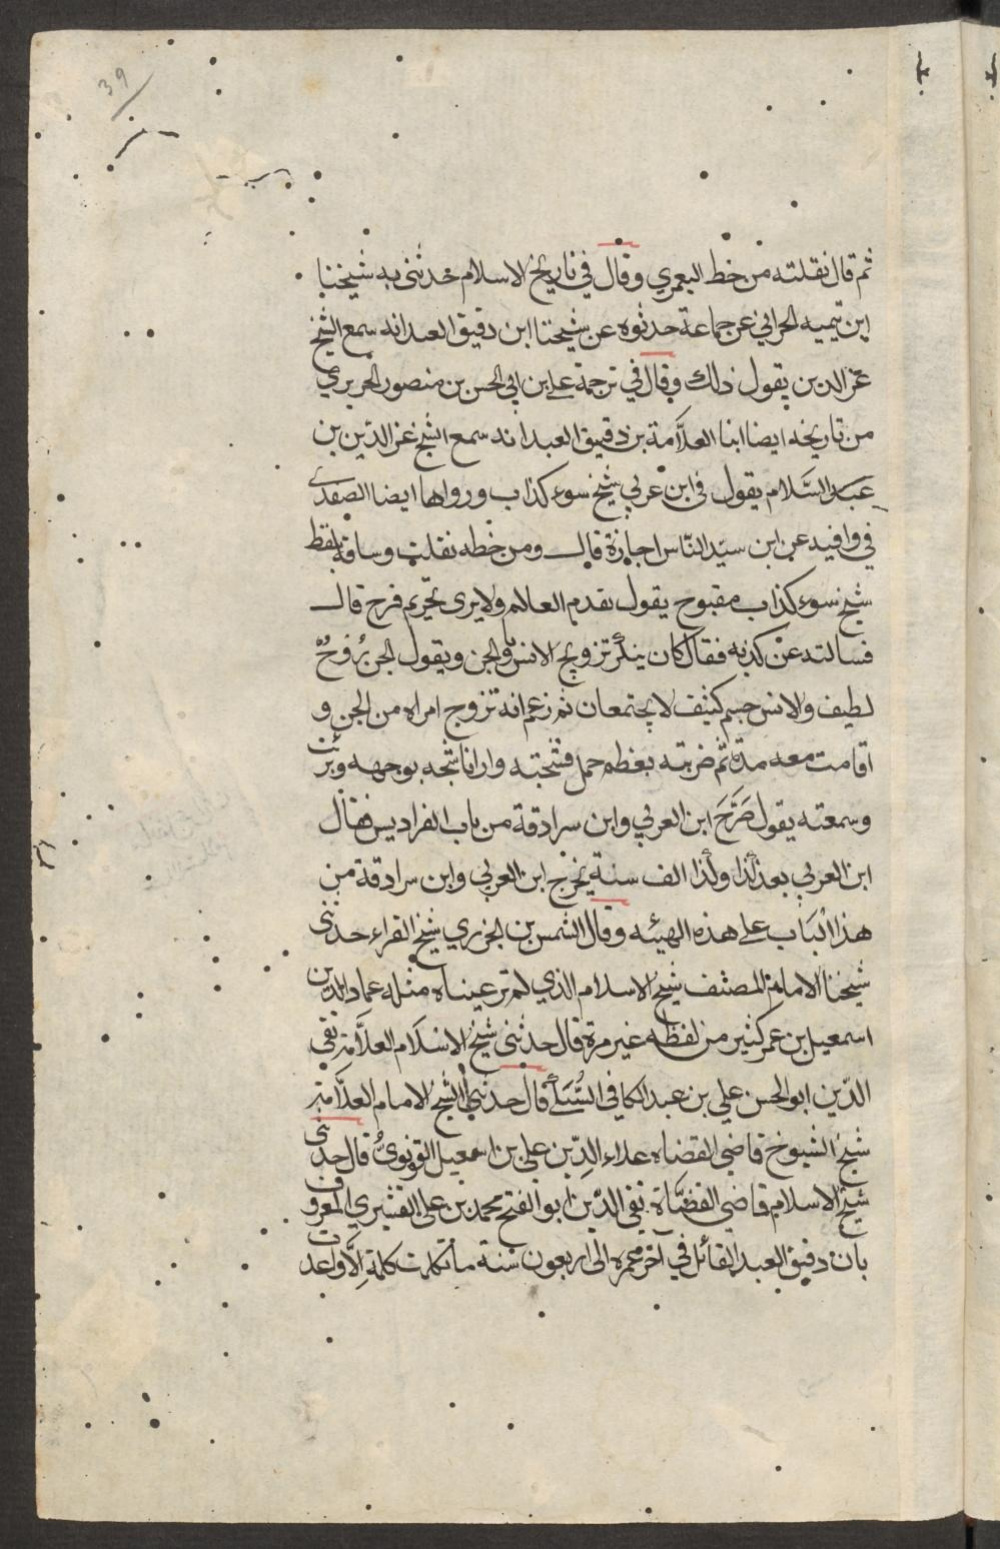 39
ثم قال نقلته من خط اليعمري وقال في تاريخ الاسلام حدثني به شيخنا
ابن تيميه الحراني عن جماعة حدثوه عن شيخنا ابن دقيق العيد انه سمع الشيخ
عز الدين يقول ذلك وقال في ترجمة علي بن ابي الحسن بن منصور الحريري
من تاريخه ايضا ابنا العلّامة بن دقيق العيد انه سمع الشيخ عز الدين بن
عبد السّلام يقول في ابن عربي شيخ سوء كذاب ورواها ايضا الصفدي
في وافيه عن ابن سيّد النّاس اجازة قال ومن خطه نقلت وساقه بلفظ
شيخ سوء كذاب مقبوح يقول بقدم العالم ولا يرى تحريم فرج قال
فسالته عن كذبه فقال كان ينكر تزويج الانس بالجن ويقول الجن رُوحٌ
لطيف والانس جسم كثيف لا يجتمعان ثم زعم انه تزوج امراه من الجن و
اقامت معه مدة ثم ضربته بعظم جمل فشجته وارانا شجه بوجهه وبرئت
وسمعته يقول صَرَّحَ ابن العربي وابن سرادقة من باب الفراديس فقال
ابن العربي بعد كذا وكذا الف سنة يخرج ابن العربي وابن سرادقة من
هذا الباب على هذه الهيئه وقال الشمس بن الجزري شيخ القراء حدثني
شيخنا الامام المصنف شيخ الاسلام الذي لم تر عيناه مثله عماد الدين
اسمعيل بن عمر كثير من لفظه غير مرة قال حدثني شيخ الاسلام العلّامة تقي
الدّين ابو الحسن علي بن عبد الكافي السُّبكي قال حدثني الشيخ الامام العلّامة
شيخ الشيوخ قاضي القضاه علاء الدّين علي بن اسمعيل القونويُّ قال حدثني
شيخ الاسلام قاضي القضاة تقي الدّين ابو الفتح محمد بن علي القشيري المعروف
بابن دقيق العيد القائل في آخر عمره الي اربعون سنة ما تكلمت كلمة الّا واعدت